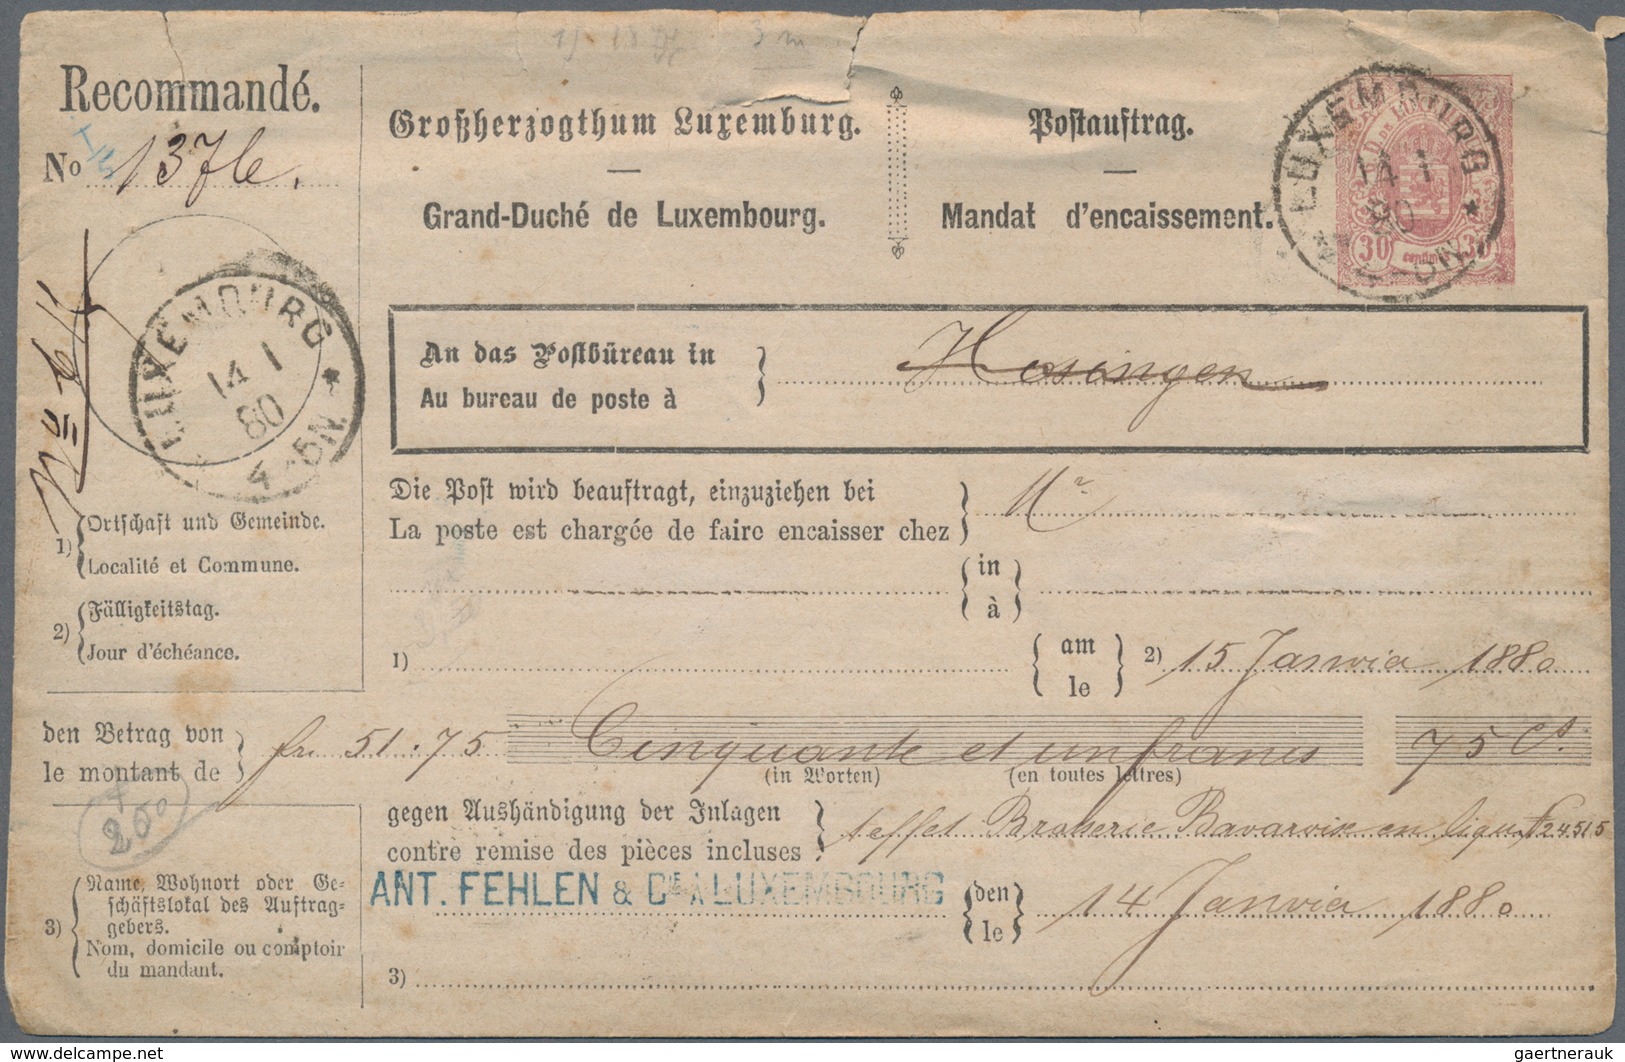 Recommandé.
No 1376.
Großherzogthum Luxemburg.
Grand-Duché de Luxembourg.
Postauftrag.
Mandat d'encaissement.
LUXEMBOURG
14 1
80
30 centimes 30
LUXEMBOURG
14 1
80
4-5N.
An das Postbüreau in
Au bureau de poste à
Hosingen
Die Post wird beauftragt, einzuziehen bei
La poste est chargée de faire encaisser chez
Mr
in
à
1) Ortschaft und Gemeinde.
Localité et Commune.
2) Fälligkeitstag.
Jour d'échéance.
1)
am
le
2) 15 Janvier 1880
den Betrag von
le montant de
fr. 51.75 Cinquante et un francs 75 Cs
(in Worten) (en toutes lettres)
250
gegen Aushändigung der Inlagen
contre remise des pièces incluses
1 effet Bavaroise en 24515
ANT. FEHLEN & CIE A LUXEMBOURG
den
le
14 Janvier 1880
3) Name, Wohnort oder Ge-
schäftslokal des Auftrag-
gebers.
Nom, domicile ou comptoir
du mandant.
3)
www.delcampe.net
gaertnerauk